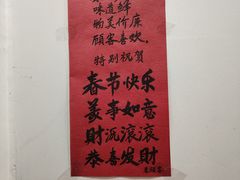 味道鲜
物美价廉
顾客喜欢.
特别祝贺
春节快乐
羡事如意
财沠滚滚
恭喜发财